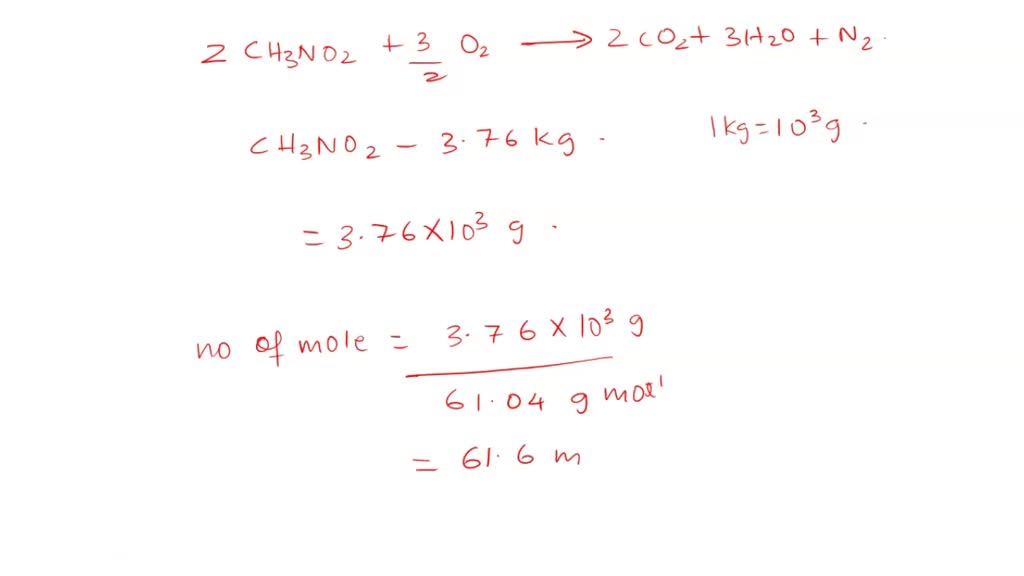 2 CH3NO2 + 3/2 O2 → 2 CO2 + 3H2O + N2.
CH3NO2 - 3.76 kg. 1kg = 10³g.
= 3.76 X 10³ g.
no of mole = 3.76 X 10³ g
61.04 g mol¹
= 61.6 m